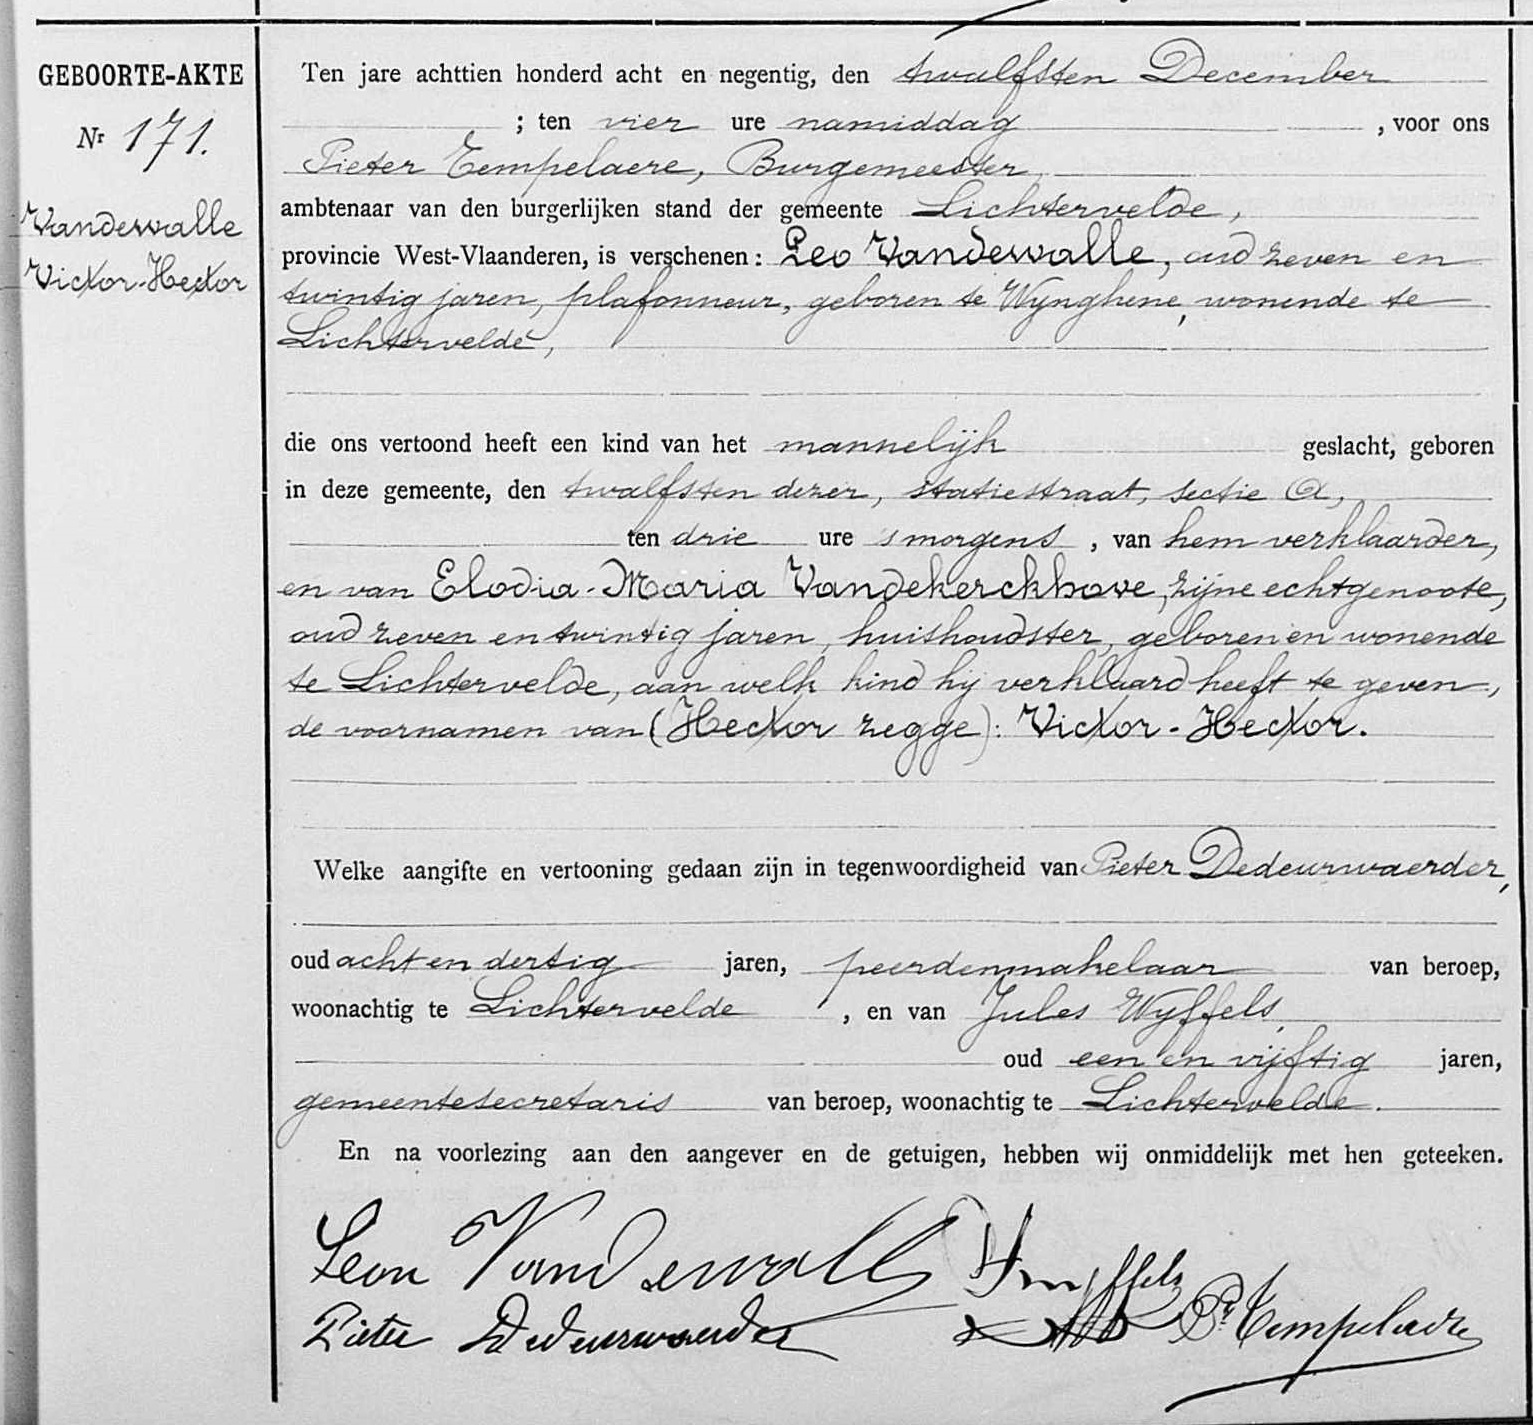 GEBOORTE-AKTE
Nr 171.
Vandewalle
Victor-Hector
Ten jare achttien honderd acht en negentig, den twalfsten December
; ten vier ure namiddag , voor ons
Pieter Tempelaere, Burgemeester
ambtenaar van den burgerlijken stand der gemeente Lichtervelde,
provincie West-Vlaanderen, is verschenen: Leo Vandewalle, oud zeven en
twintig jaren, plafonneur, geboren te Wynghene, wonende te
Lichtervelde,
die ons vertoond heeft een kind van het mannelijk geslacht, geboren
in deze gemeente, den twalfsten dezer, statiestraat, sectie A,
ten drie ure 'smorgens , van hem verklaarder,
en van Elodia-Maria Vandekerckhove, zijne echtgenoote,
oud zeven en twintig jaren, huishoudster, geboren en wonende
te Lichtervelde, aan welk kind hij verklaard heeft te geven,
de voornamen van (Hector zegge): Victor-Hector.
Welke aangifte en vertooning gedaan zijn in tegenwoordigheid van Pieter Dedeurwaerder,
oud acht en dertig jaren, peerdenmakelaar van beroep,
woonachtig te Lichtervelde , en van Jules Wyffels,
oud een en vijftig jaren,
gemeentesecretaris van beroep, woonachtig te Lichtervelde.
En na voorlezing aan den aangever en de getuigen, hebben wij onmiddelijk met hen geteeken.
Leon Vandewalle Wyffels
Pieter Dedeurwaerder Pr Tempelaere